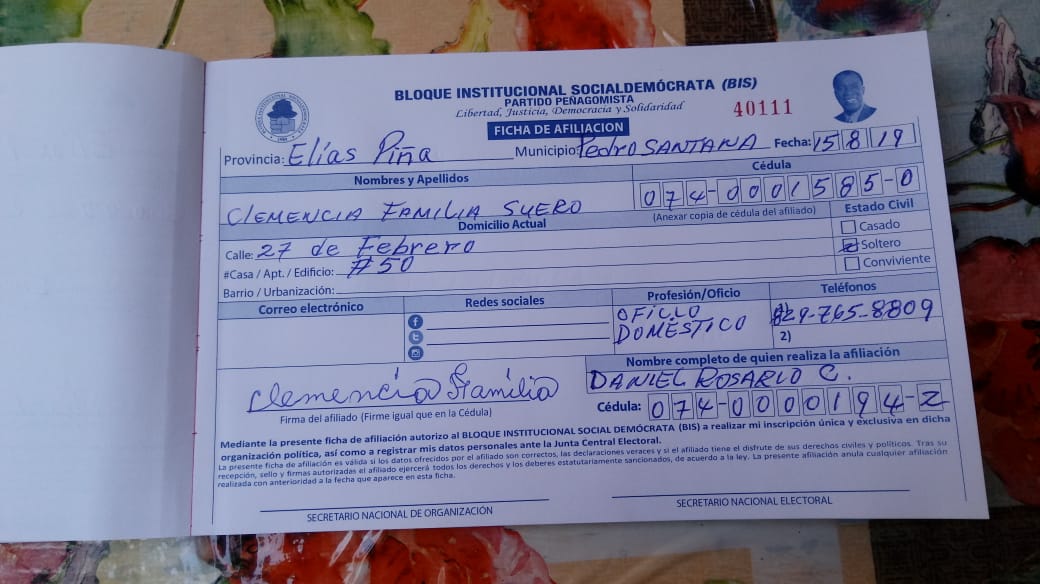 BLOQUE INSTITUCIONAL SOCIALDEMÓCRATA (BIS)
PARTIDO PEÑAGOMISTA
Libertad, Justicia, Democracia y Solidaridad
40111
FICHA DE AFILIACION
Provincia: Elías Piña Municipio: Pedro SANTANA Fecha: 15 8 19
Nombres y Apellidos
Cédula
CLEMENCIA FAMILIA SUERO
074-0001585-0
(Anexar copia de cédula del afiliado)
Domicilio Actual
Estado Civil
Calle: 27 de Febrero
Casado
#Casa / Apt. / Edificio: #50
Soltero
Barrio / Urbanización:
Conviviente
Correo electrónico
Redes sociales
Profesión/Oficio
Teléfonos
OFICIO
DOMÉSTICO
829-765-8809
2)
Nombre completo de quien realiza la afiliación
DANIEL ROSARIO C.
Clemencia Familia
Cédula: 074-0000194-2
Firma del afiliado (Firme igual que en la Cédula)
Mediante la presente ficha de afiliación autorizo al BLOQUE INSTITUCIONAL SOCIAL DEMÓCRATA (BIS) a realizar mi inscripción única y exclusiva en dicha
organización política, así como a registrar mis datos personales ante la Junta Central Electoral.
La presente ficha de afiliación es válida si los datos ofrecidos por el afiliado son correctos, las declaraciones veraces y si el afiliado tiene el disfrute de sus derechos civiles y políticos. Tras su
recepción, sello y firmas autorizadas el afiliado ejercerá todos los derechos y los deberes estatutariamente sancionados, de acuerdo a la ley. La presente afiliación anula cualquier afiliación
realizada con anterioridad a la fecha que aparece en esta ficha.
SECRETARIO NACIONAL DE ORGANIZACIÓN
SECRETARIO NACIONAL ELECTORAL